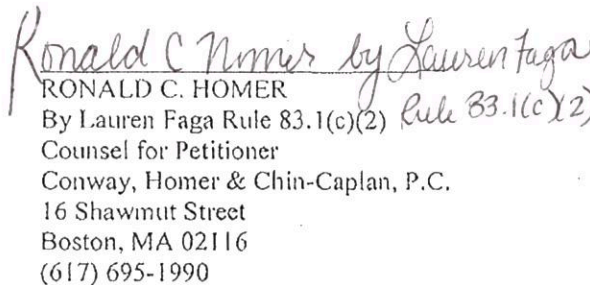 Ronald C Homer by Lauren Faga
RONALD C. HOMER
By Lauren Faga Rule 83.1(c)(2) Rule 83.1(c)(2)
Counsel for Petitioner
Conway, Homer & Chin-Caplan, P.C.
16 Shawmut Street
Boston, MA 02116
(617) 695-1990